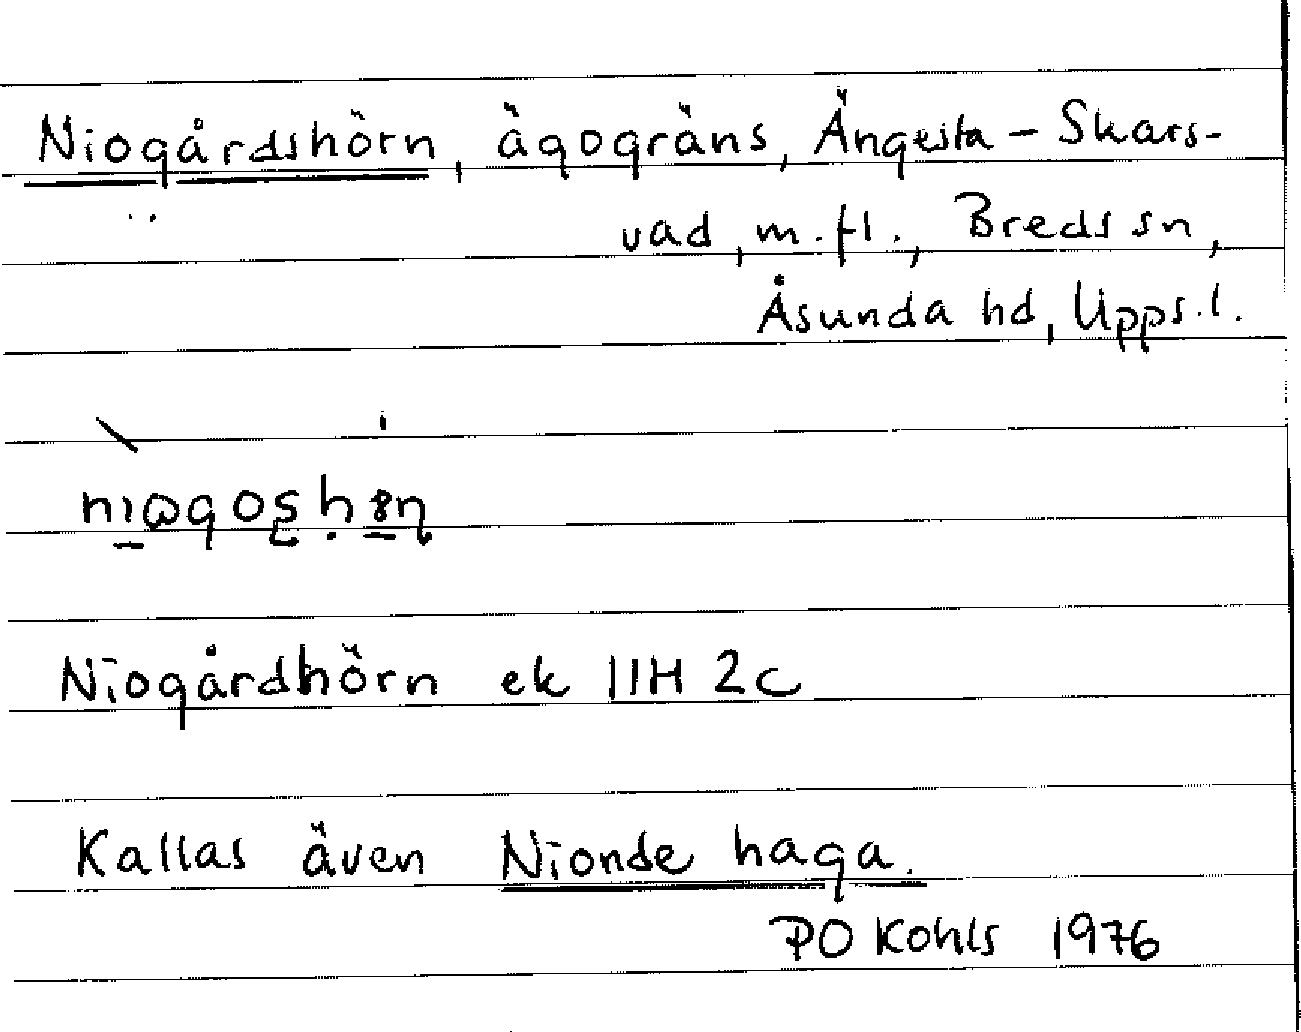 Niogårdshörn, ägogräns, Ängesta - Skars-
vad, m.fl., Breds sn,
Åsunda hd, Upps.l.
Niogårdhörn ek 11H 2c
Kallas även Nionde haga.
PO Kohls 1976